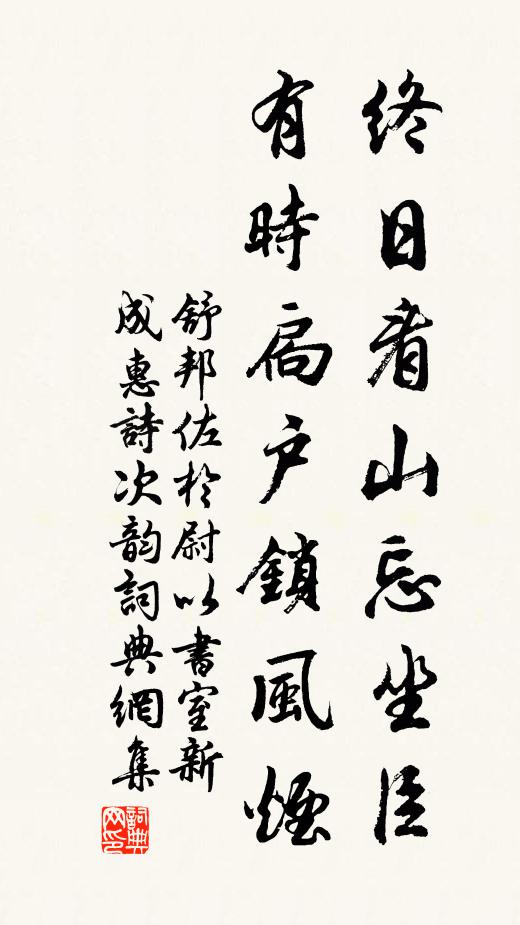 終日看山忘坐臣
有時扃户鎖風煙
舒邦佐於尉以書室新
成惠詩次韵詞典網集
詞典网印